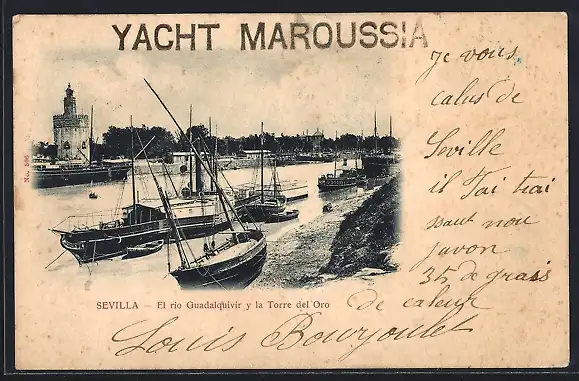 YACHT MAROUSSIA
No. 596
Je vous
calus de
Seville
il Fai trai
saut nou
favon
35 de grais
de caleur
SEVILLA - El rio Guadalquivir y la Torre del Oro
Louis